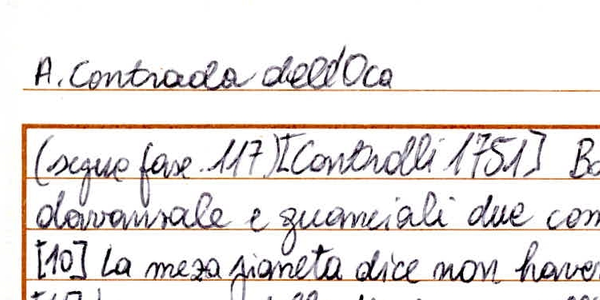 A. Contrada dell'Oca
(segue fasc. 117) [Controlli 1751]
davanzale e guanciali due
[10] La meza pianeta dice non